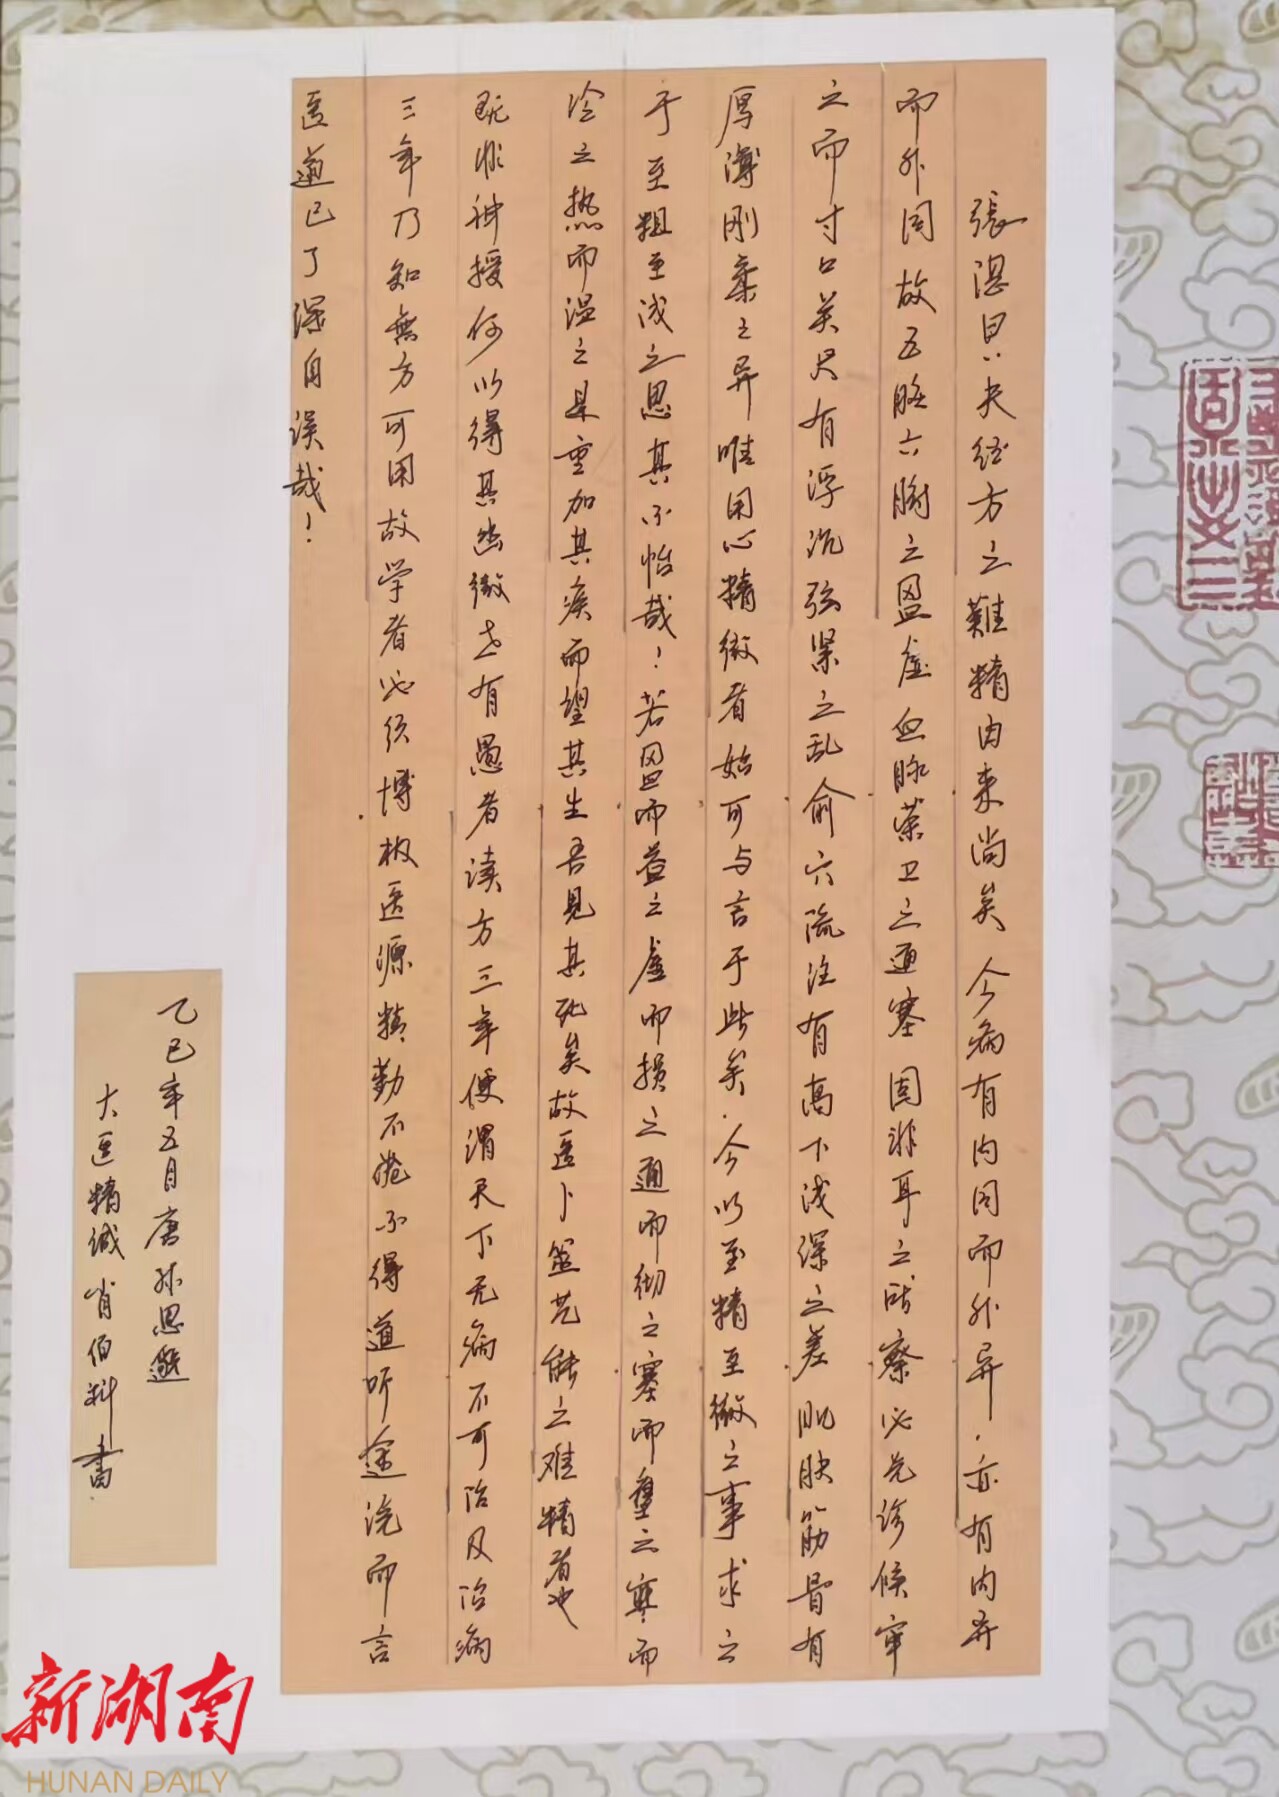 張湛曰夫经方之難精由来尚矣今病有内同而外异.亦有内异
而外同故五脏六腑之盈虚血脉荣卫之通塞固非耳之所察必先诊候审
之而寸口关尺有浮沉弦紧之乱俞穴流注有高下浅深之差肌肤筋骨有
厚薄刚柔之异唯用心精微者始可与言于此矣.今以至精至微之事求之
于至粗至浅之思其不怡哉！若盈而益之虚而损之通而彻之塞而壅之寒而
冷之热而温之是重加其疾而望其生吾见其死矣故医卜筮艺能之难精者也
既非神授何以得其幽微世有愚者读方三年便谓天下无病不可治及治病
三年乃知無方可用故学者必须博极医源精勤不倦不得道听途说而言
医道已了深自误哉！
乙巳年五月唐孙思邈
大医精诚肖伯科書
新湖南
HUNAN DAILY